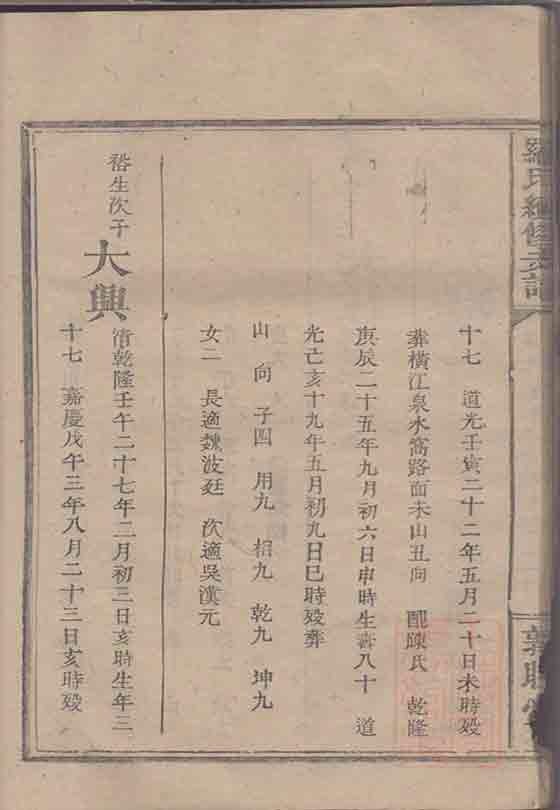 羅氏續修支譜
十七 道光壬寅二十二年五月二十日未時歿
葬橫江泉水窩路面未山丑向 配陳氏 乾隆
庚辰二十五年九月初六日申時生壽八十 道
光己亥十九年五月初九日巳時歿葬
山 向 子四 用九 相九 乾九 坤九
女二 長適魏波廷 次適吳漢元
裕生次子
大興
清乾隆壬午二十七年二月初三日亥時生年三
十七 嘉慶戊午三年八月二十三日亥時歿